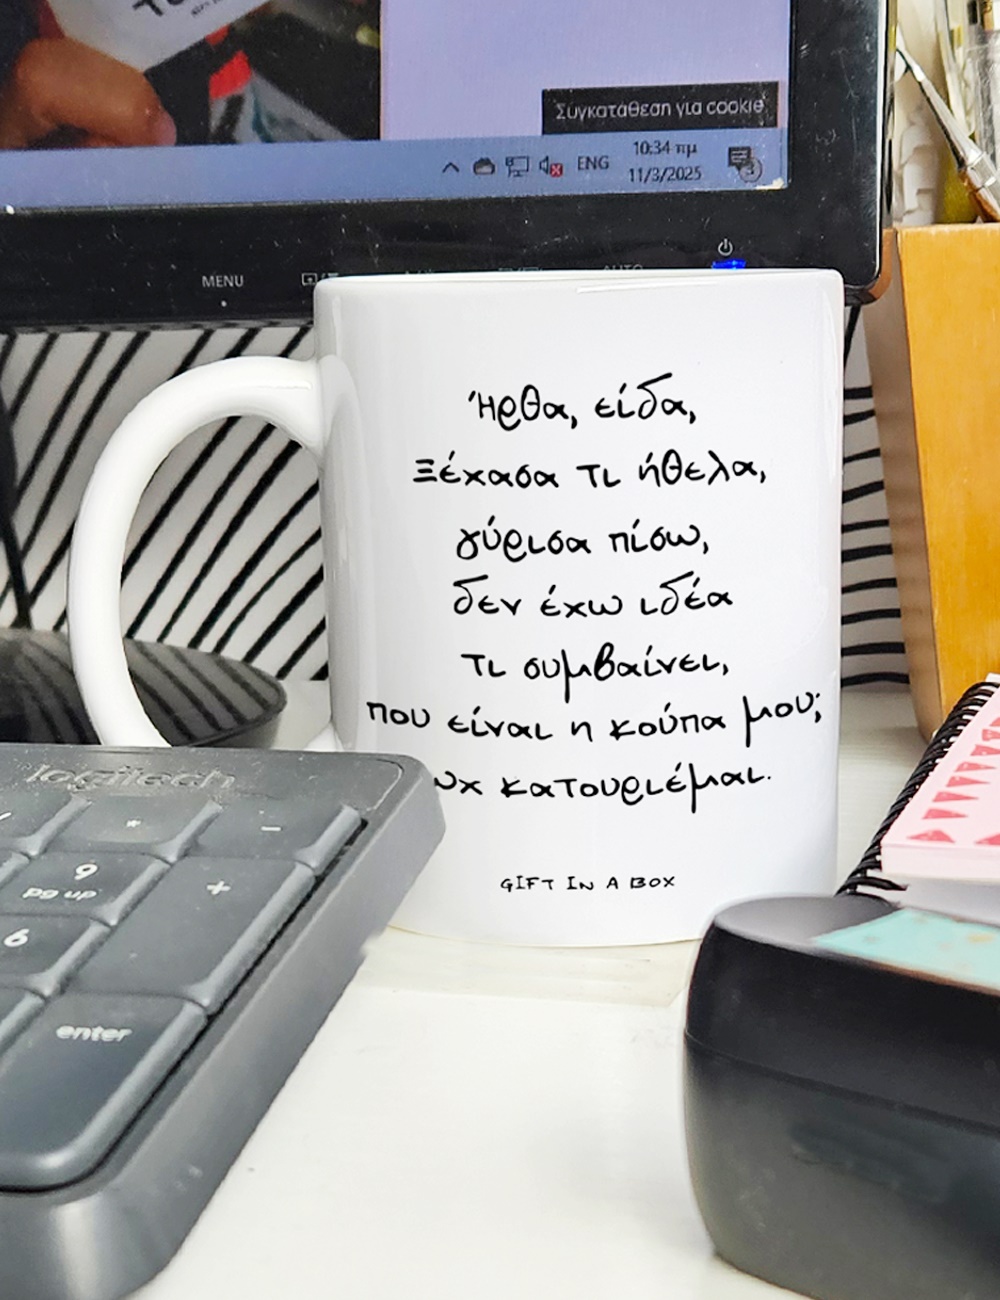 Συγκατάθεση για cookie
ENG
10:34 πμ
11/3/2025
3
MENU
Ήρθα, είδα,
Ξέχασα τι ήθελα,
γύρισα πίσω,
δεν έχω ιδέα
τι συμβαίνει,
που είναι η κούπα μου;
κατουριέμαι.
GIFT IN A BOX
logitech
*
-
9
pg up
+
6
enter